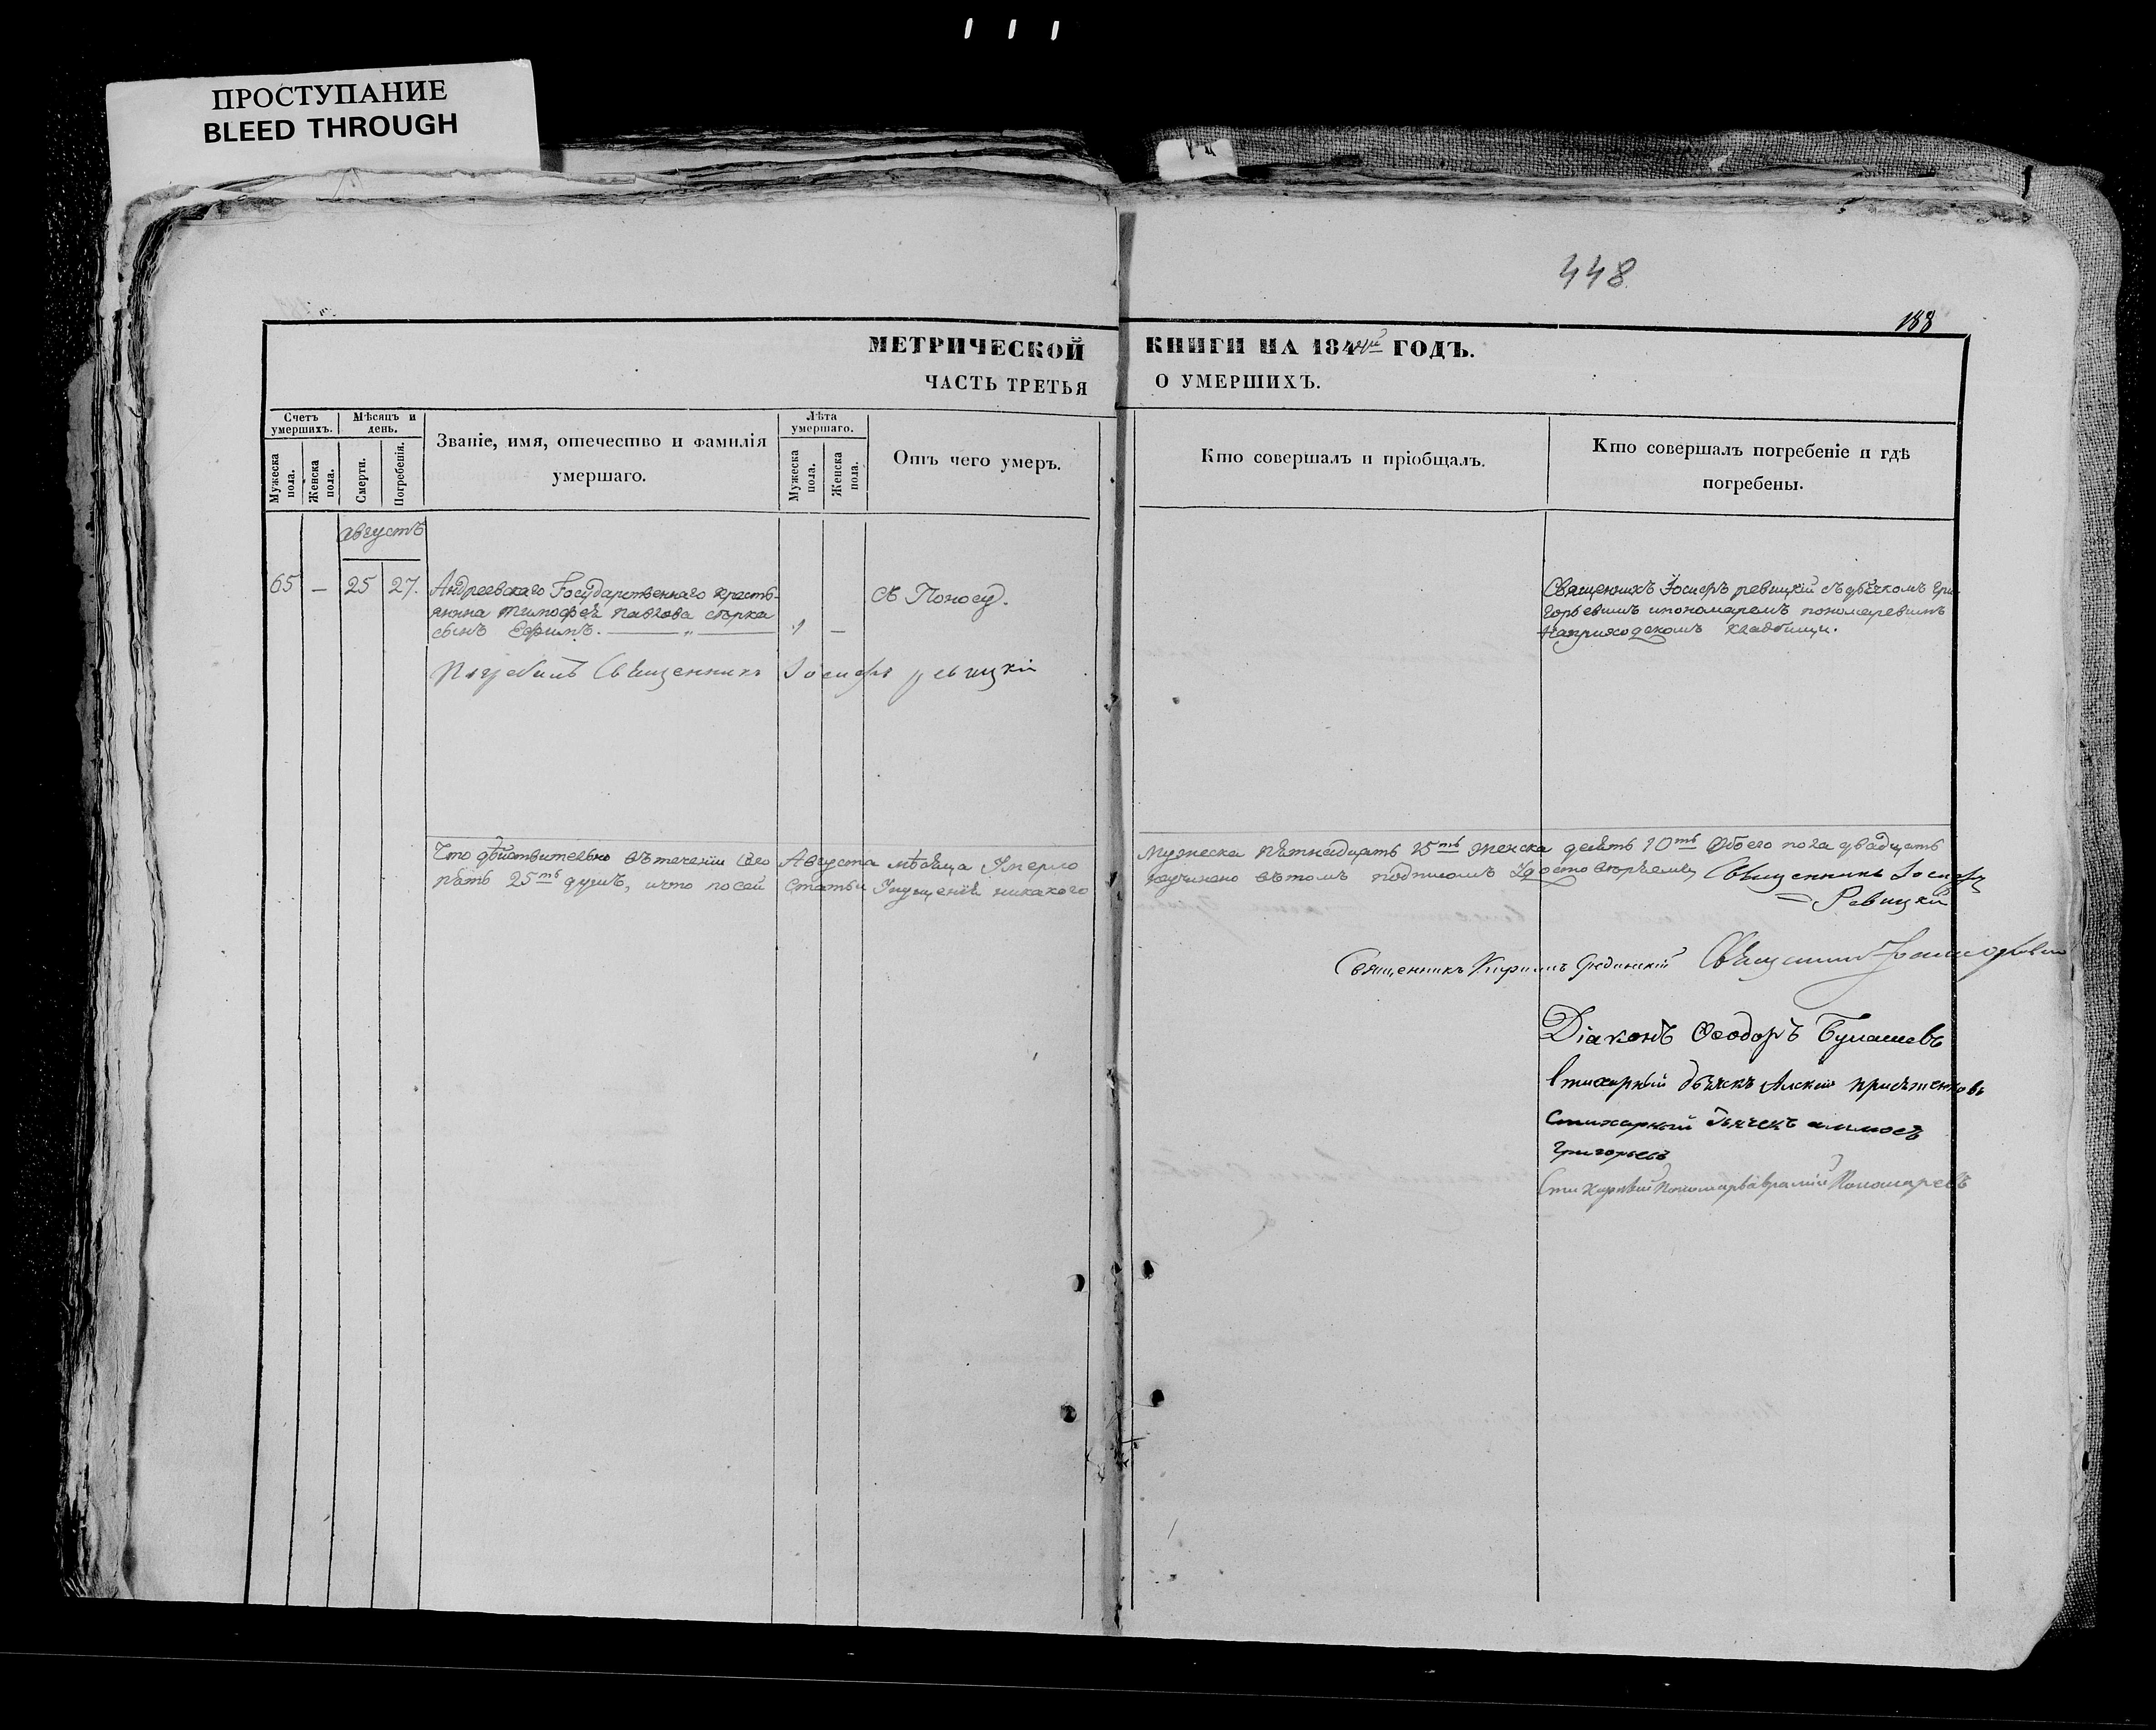 ПРОСТУПАНИЕ
BLEED THROUGH
448
188
МЕТРИЧЕСКОЙ КНИГИ НА 1844й ГОДЪ.
ЧАСТЬ ТРЕТЬЯ О УМЕРШИХЪ.
Счетъ умершихъ.
Мужеска пола.
Женска пола.
Мѣсяцъ и день.
Смерти.
Погребенія.
Званіе, имя, отечество и фамилія умершаго.
Лѣта умершаго.
Мужеска пола.
Женска пола.
Отъ чего умеръ.
Кто совершалъ и пріобщалъ.
Кто совершалъ погребеніе и гдѣ погребены.
августъ
65 – 25 27. Андреевскаго Государственнаго крестья-
янина Тимофея Павлова
сынъ Ефимъ. 1 –
съ Поносу.
Священникъ Іосифъ ревицкій съ дьячкомъ Гри-
горьевимъ ипономаремъ пономаревимъ
наприходскомъ кладбищи.
Погребалъ Священникъ Іосифъ ревицкій
Что дѣйствительно въ теченіи сего Августа мѣсяца Умерло Мужеска пятнадцать 15ть женска десять 10ть Обоего пола двадцать
пять 25ть душъ, ичто по сей Статьи Упущенія никакого неучинено вътомъ подписомъ Удостовѣряемъ Священникъ Іосифъ
Ревицкій
Священникъ Кирилъ
Священникъ
Діаконъ Ѳеодоръ Булашевъ
Стихарный дьячекъ
Стихарный дьячекъ
Григорьевъ
Стихарный Пономарь Пономаревъ